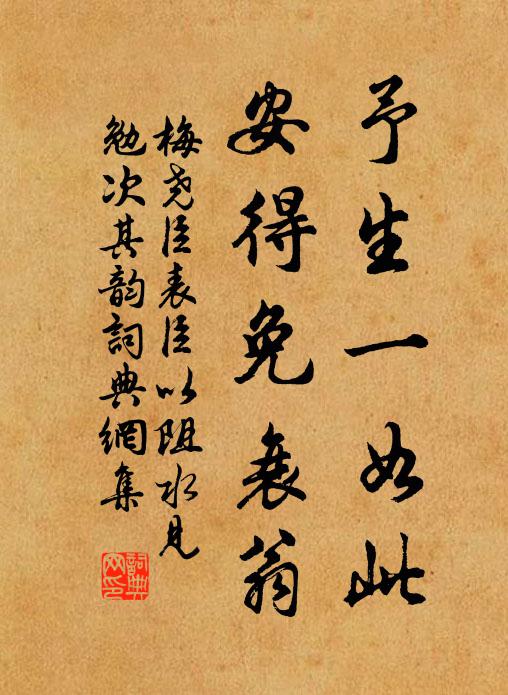 予生一如此
安得免衰翁
梅尧臣表臣以阻水见
勉次其韵詞典網集
詞典
网印